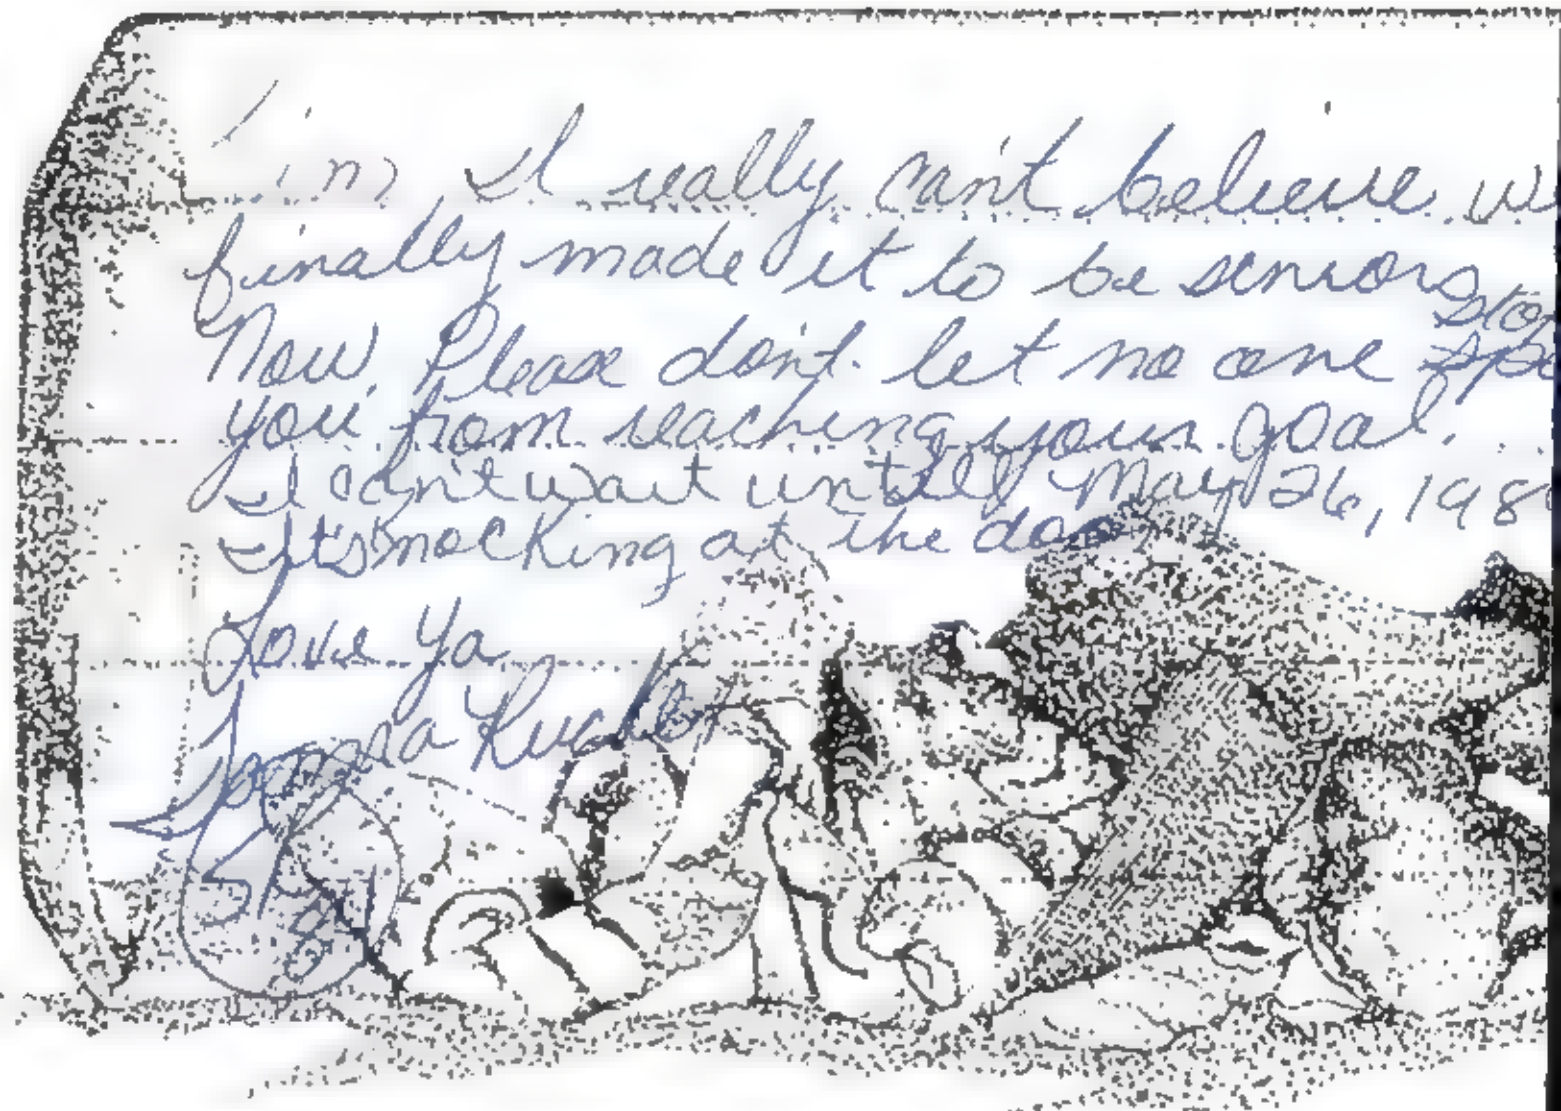 I really can't believe w
finally made it to be seniors
Now. Please don't let no one stop
you from reaching your goal.
I can't wait until May 26, 198
Its knocking at the door
Love Ya